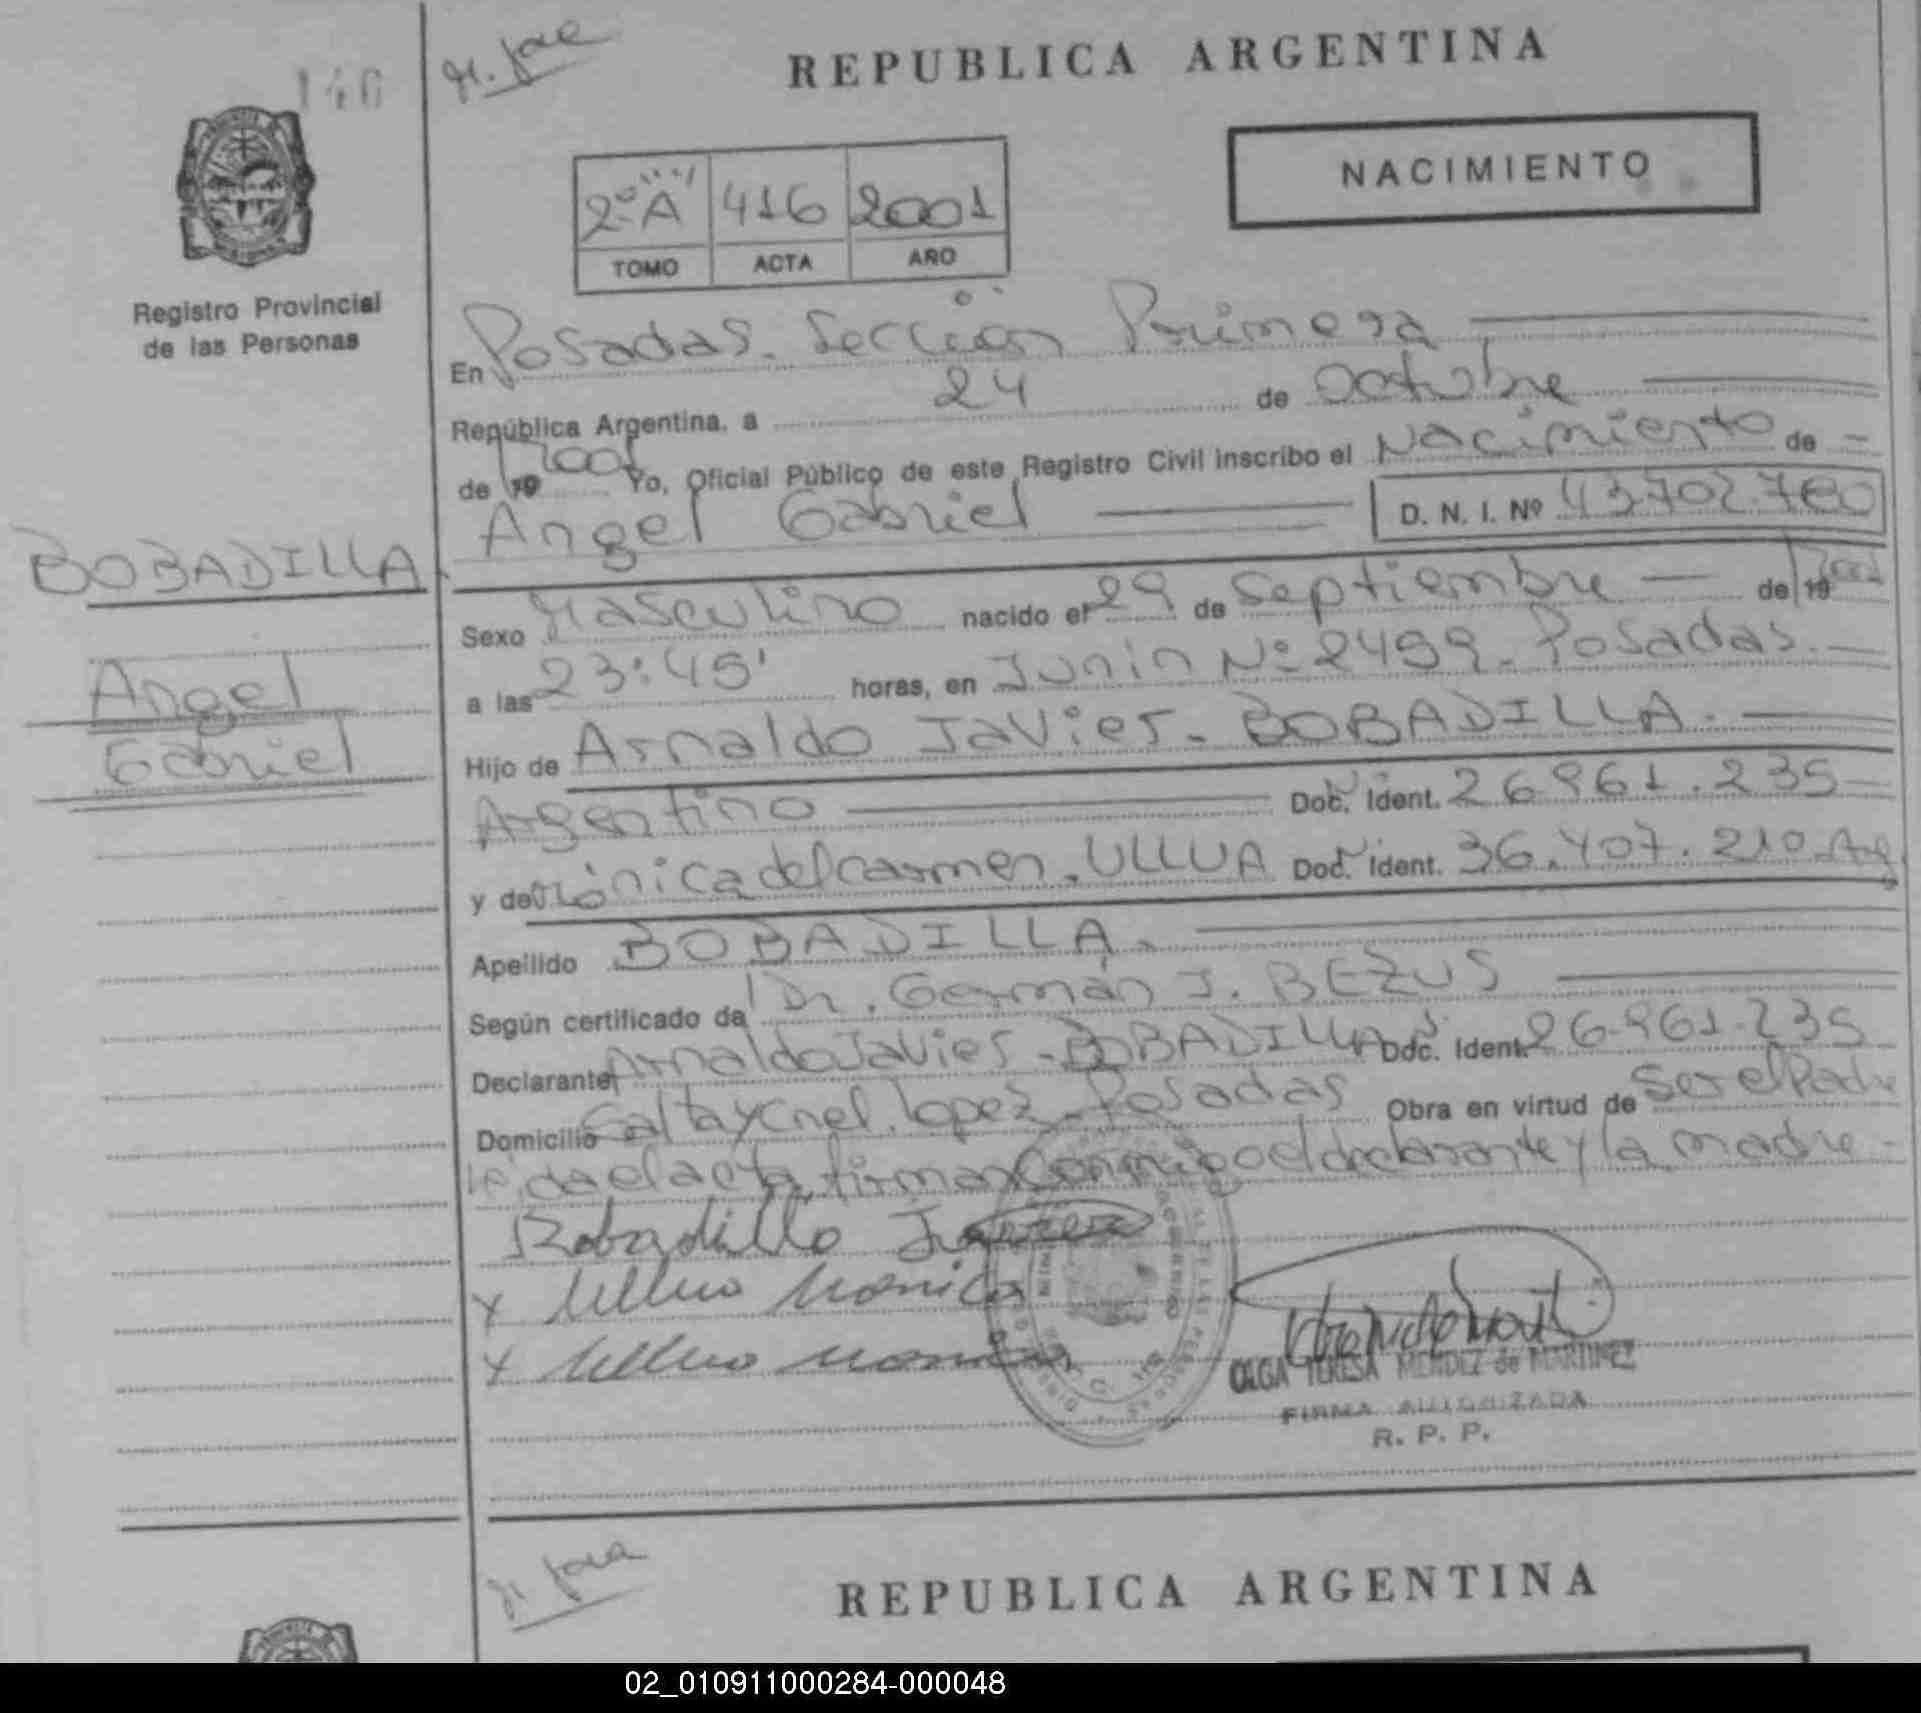 140
REPUBLICA ARGENTINA
NACIMIENTO
2º A 416 2001
TOMO ACTA AÑO
Registro Provincial
de las Personas
En Posadas. Sección Primera
República Argentina, a 24 de Octubre
de 19 2001 Yo, Oficial Público de este Registro Civil inscribo el Nacimiento de
Angel Gabriel D. N. I. Nº 43.702.780
BOBADILLA
Angel
Gabriel
Sexo Masculino nacido el 29 de Septiembre de 19 2001
a las 23:45' horas, en Junin Nº 2499. Posadas.
Hijo de Arnaldo Javier. BOBADILLA.
Argentino Doc. Ident. 26.961.235
y de Mónica del Carmen. ULLUA Doc. Ident. 36.407.210 Arg
Apellido BOBADILLA.
Según certificado de Dr. Germán J. BEZUS
Declarante Arnaldo Javier. BOBADILLA Doc. Ident. 26.961.235
Domicilio y Cnel. Lopez. Posadas Obra en virtud de Ser el Padre
da el acta, firman Conmigo el declarante y la madre
Bobadilla Javier
x Ullua Monica
x Ullua Monica
OLGA TERESA MENDEZ de MARTINEZ
FIRMA AUTORIZADA
R. P. P.
REPUBLICA ARGENTINA
02_010911000284-000048